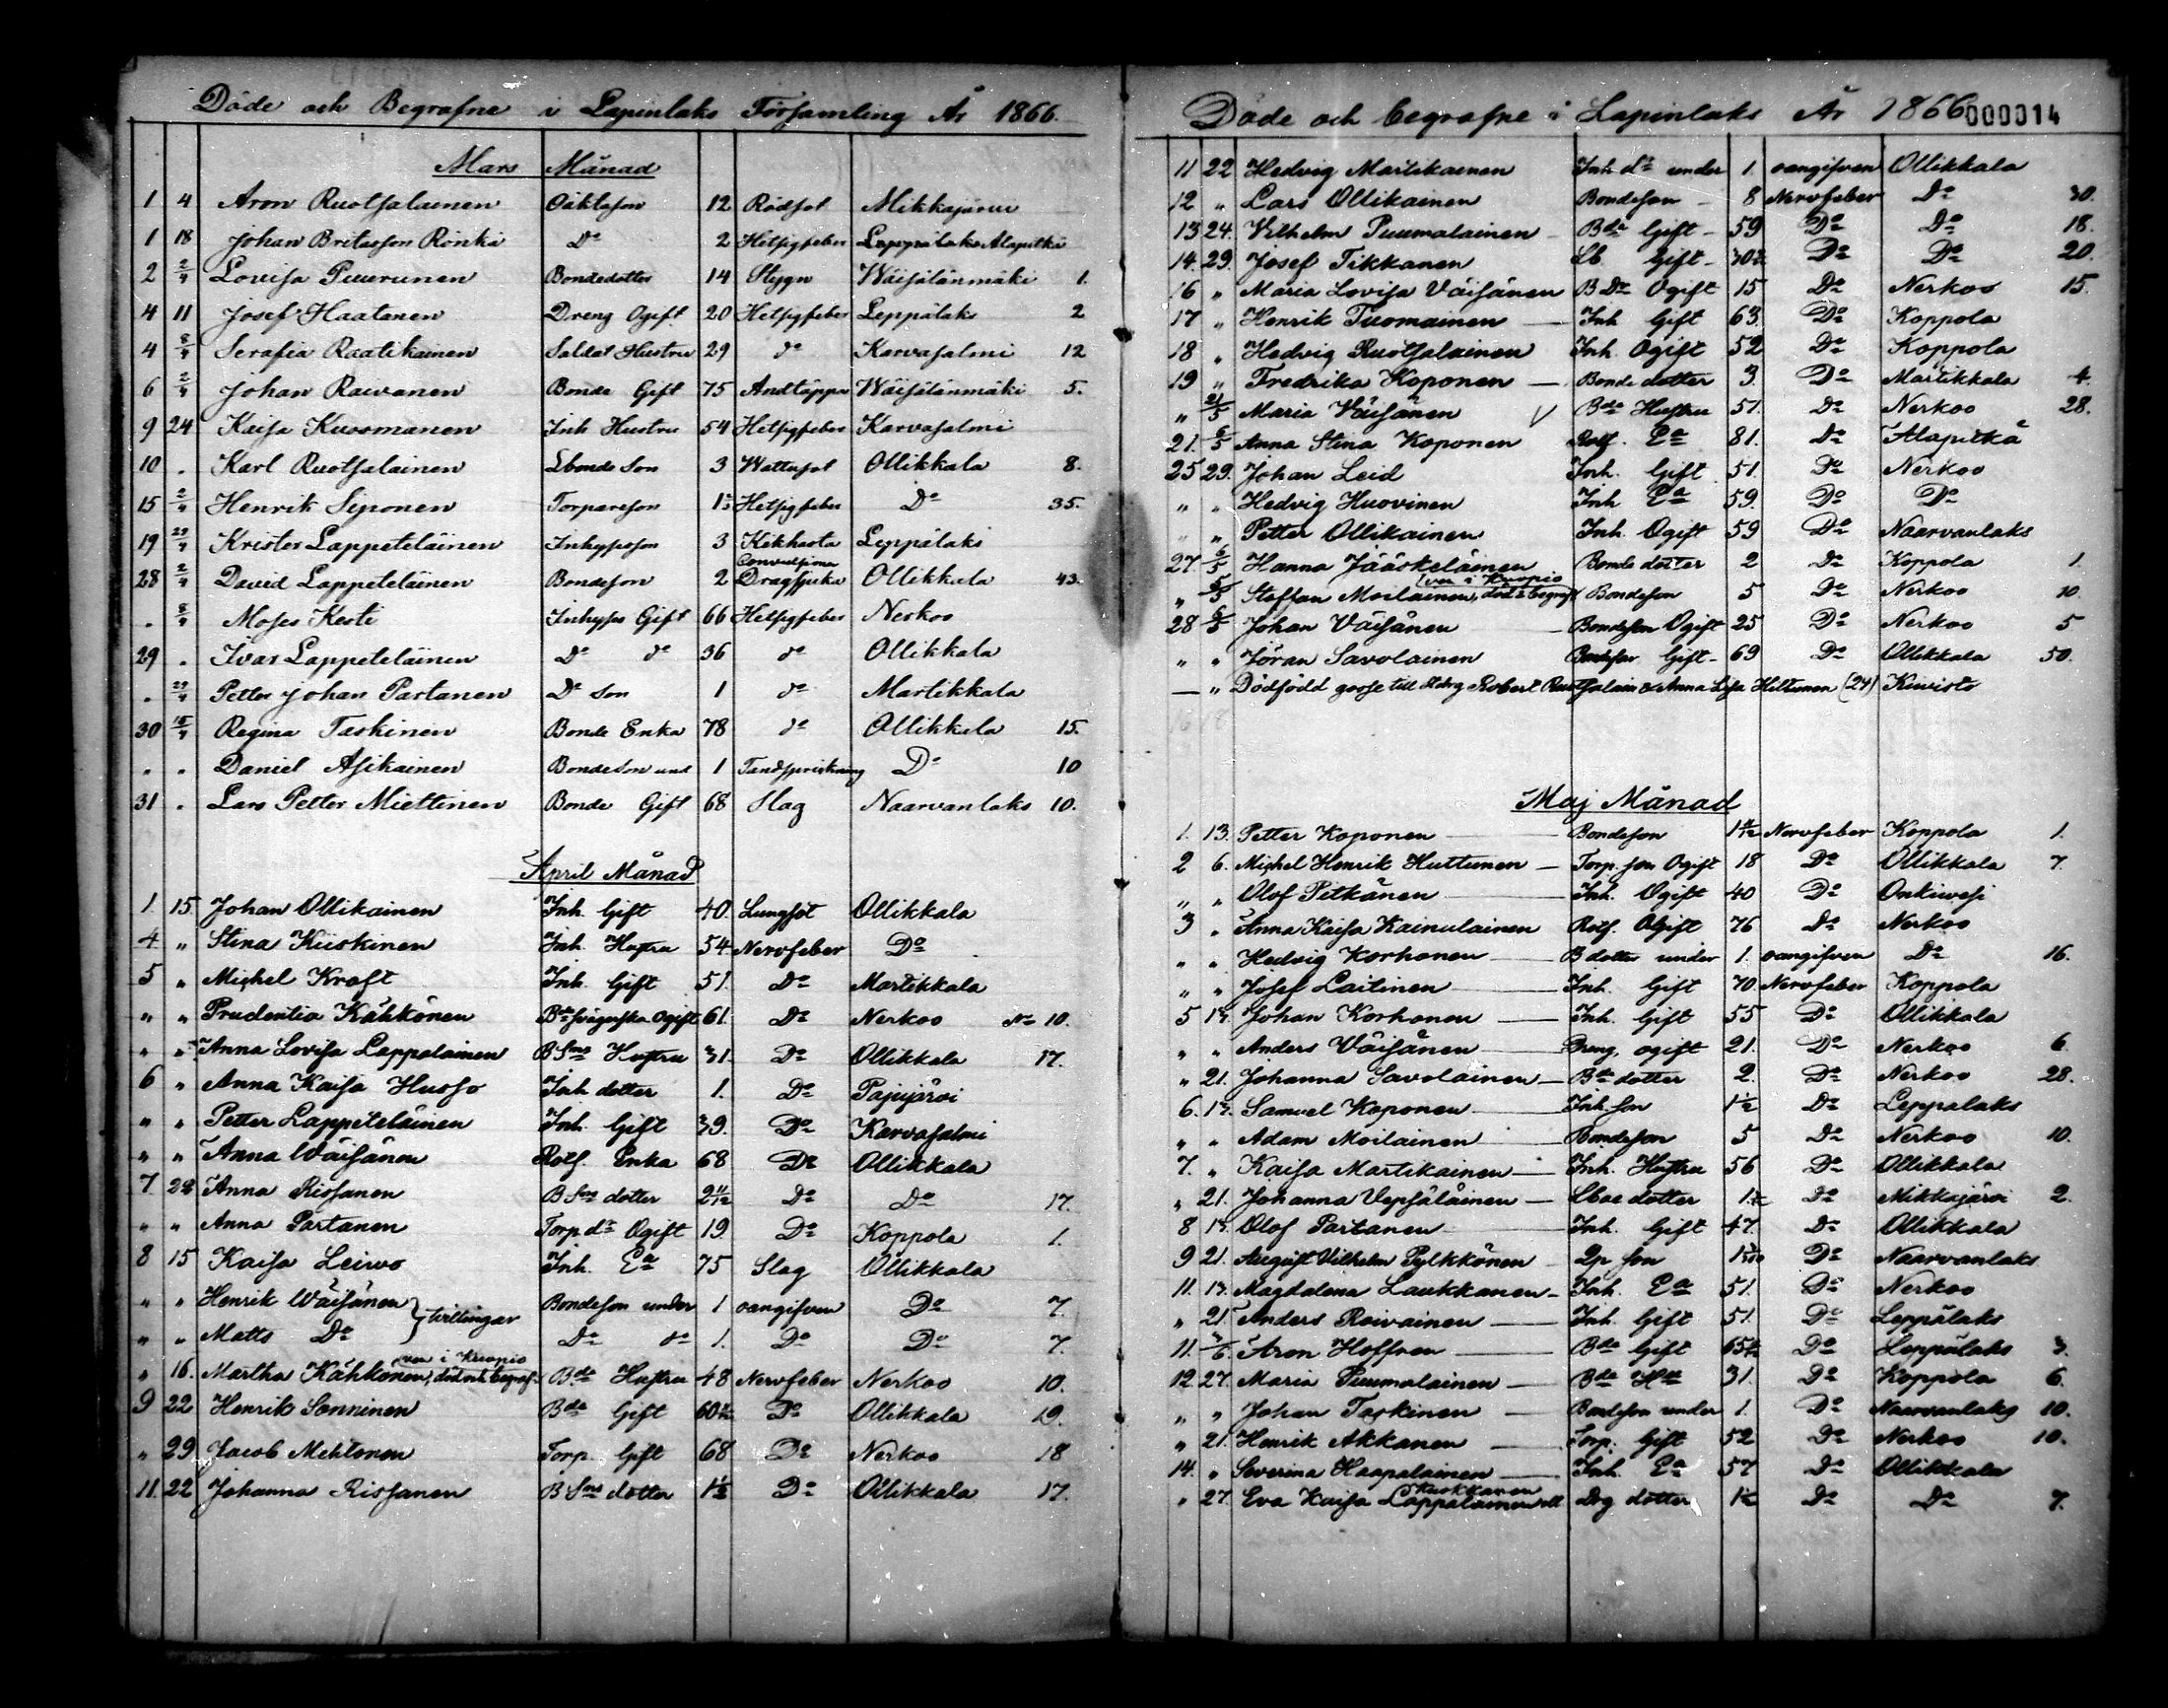 Döde och Begrafne i Lapinlaks Församling År 1866.
Mars Månad
1 4 Aron Ruotsalainen Oäktason 12 Rödsot Mikkajärvi
1 18 Johan Britasson Rönkä Do 2 Hetsigfeber Leppälaks Alapitkä
2 2/4 Lovisa Puurunen Bondedotter 14 Stygn Wäisälänmäki 1.
4 11 Josef Haatanen Dreng Ogift 20 Hetsigfeber Leppälaks 2
4 8/4 Serafia Raatikainen Soldat Hustru 29 do Karvasalmi 12
6 2/4 Johan Rauvanen Bonde Gift 75 Andtäppa Wäisälänmäki 5.
9 24 Kaisa Kuosmanen Inh Hustru 54 Hetsigfeber Karvasalmi
10 . Karl Ruotsalainen Lbonde Son 3 Wattusot Ollikkala 8.
15 2/4 Henrik Siponen Torpareson Hetsigfeber Do 35.
19 22/4 Krister Lappeteläinen Inhypsson 3 Kikhosta Leppälaks
28 2/4 David Lappeteläinen Bondeson 2 Convulsiona Dragsjuka Ollikkala 43.
. 8/4 Moses Kesti Inhyses Gift 66 Hetsigfeber Nerkoo
29 . Ivar Lappeteläinen Do do 36 do Ollikkala
. 22/4 Petter Johan Partanen Do Son 1 do Martikkala
30 15/4 Regina Taskinen Bonde Enka 78 do Ollikkala 15.
. . Daniel Asikainen BondeSon und 1 Tandsprickning Do 10
31 . Lars Petter Miettinen Bonde Gift 68 Slag Naarvanlaks 10.
April Månad
1. 15 Johan Ollikainen Inh. Gift 40. Lungsot Ollikkala
4 " Stina Kiiskinen Inh. Hustru 54 Nervfeber Do
5 " Michel Kraft Inh. Gift 51. Do Martikkala
" " Prudentia Kähkönen Bde svägerska Ogift 61. Do Nerkoo No 10.
" " Anna Lovisa Lappalainen BSons Hustru 31. Do Ollikkala 17.
6 " Anna Kaisa Husso Inh dotter 1. Do Pajujärvi
" " Petter Lappeteläinen Inh. Gift 39. Do Karvasalmi
" " Anna Wäisänen Rotf. Enka 68 Do Ollikkala
7 22 Anna Rissanen BSons dotter 2 11/12 Do Do 17.
" " Anna Partanen Torp dr Ogift 19. Do Koppola 1.
8 15 Kaisa Leivo Inh. Ea 75 Slag Ollikkala
" " Henrik Wäisänen } tvillingar Bondeson under 1 oangifven Do 7.
" " Matts Do Do do 1. Do Do 7.
" 16. Martha Kähkönen, var i Kuopio död och begraf. Bde Hustru 48 Nervfeber Nerkoo 10.
9 22 Henrik Sonninen Bde Gift 60 Do Ollikkala 19.
" 29 Jacob Mehtonen Torp. Gift 68 Do Nerkoo 18
11. 22 Johanna Rissanen BSons dotter 1½ Do Ollikkala 17.
Döde och begrafne i Lapinlaks År 1866 000014
11 22 Hedvig Martikainen Inh dr under 1. oangifven Ollikkala
12 " Lars Ollikainen Bondeson 8 Nervfeber Do 30.
13 24. Vilhelm Puumalainen Bde Gift 59 Do Do 18.
14. 29. Josef Tikkanen Lb Gift 30 Do Do 20.
16 " Maria Lovisa Väisänen B Dr Ogift 15 Do Nerkoo 15.
17 " Henrik Tuomainen Inh Gift 63. Do Koppola
18 " Hedvig Ruotsalainen Inh. Ogift 52 Do Koppola
19 " Fredrika Koponen Bonde dotter 3. Do Martikkala 4.
" 21/5 Maria Väisänen V Bde Hustru 51. Do Nerkoo 28.
21. 6/5 Anna Stina Koponen Rotf. Ea 81. Do Alapitkä
25 29. Johan Leid Inh. Gift 51. Do Nerkoo
" " Hedvig Huovinen Inh Ea 59. Do Do
" " Petter Ollikainen Inh. Ogift 59 Do Naarvanlaks
27. 6/5 Hanna Jääskeläinen Bonde dotter 2 Do Koppola 1.
" 6/5 Staffan Moilainen, (var i Kuopio död & begraf Bondeson 5 Do Nerkoo 10.
28 6/5 Johan Väisänen Bondeson Ogift 25 Do Nerkoo 5
" " Jöran Savolainen Bondeson Gift 69 Do Ollikkala 50.
— " Dödfödd gosse till Hdrg Robert Ruotsalain & Anna Lisa Hiltunen (24) Kuvisto
Maj Månad
1. 13. Petter Koponen Bondeson Nervfeber Koppola 1.
2 6. Michel Henrik Huttunen Torp. son Ogift 18 Do Ollikkala 7.
" " Olof Pitkänen Inh. Ogift 40 Do Onkivesi
3 " Anna Kaisa Kainulainen Rotf. Ogift 76 Do Nerkoo
" " Hedvig Korhonen B dotter under 1. oangifven Do 16.
" " Josef Laitinen Inh. Gift 70 Nervfeber Koppola
5 13. Johan Korhonen Inh. Gift 55 Do Ollikkala
" " Anders Väisänen Dreng, ogift 21. Do Nerkoo 6.
" 21. Johanna Savolainen Bde dotter 2. Do Nerkoo 28.
6. 13. Samuel Koponen Inh. son 1½ Do Leppälaks
" " Adam Moilainen Bondeson 5 Do Nerkoo 10.
7. " Kaisa Martikainen Inh. Hustru 56 Do Ollikkala
" 21. Johanna Vepsäläinen Lbde dotter Do Mikkajärvi 2.
8 13. Olof Partanen Inh. Gift 47. Do Ollikkala
9 21. August Vilhelm Pylkkönen son Do Naarvanlaks
11. 13. Magdalena Laukkanen Inh. Ea 51. Do Nerkoo
" 21. Anders Roivainen Inh. Gift 51. Do Leppälaks
11. 3/6. Aron Hoffren Bde Gift 65 Do Leppälaks 3.
12 27. Maria Puumalainen Bde Hu 31. Do Koppola 6.
" " Johan Taskinen Bondeson under 1. Do Naarvanlaks 10.
" 21. Henrik Akkanen Torp. Gift 52 Do Nerkoo 10.
14. " Severina Haapalainen Inh. Ea 57 Do Ollikkala
" 27. Eva Kaisa Lappalainen ell Kuokkanen Drg dotter 1½ Do Do 7.